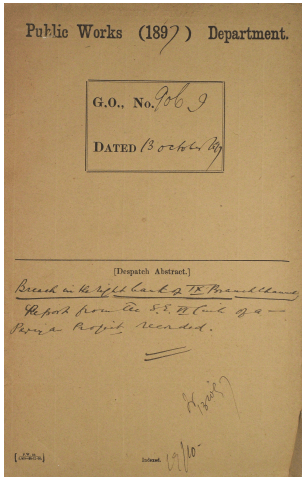 Public Works (1897) Department.
G.O., No. 906 I
DATED 13 october 97
[Despatch Abstract.]
Breach in the right bank of IX Branch Channel
Report from the S.E. VI Circle of a
Periyar Project recorded.
Indexed. 19/10